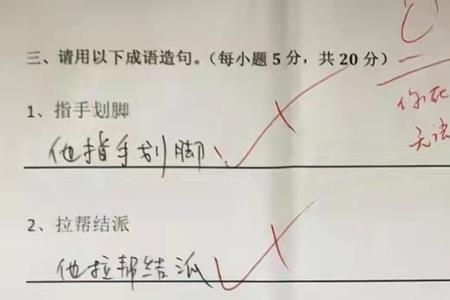 三、请用以下成语造句。（每小题 5 分，共 20 分）
1、指手划脚
他指手划脚
2、拉帮结派
他拉帮结派